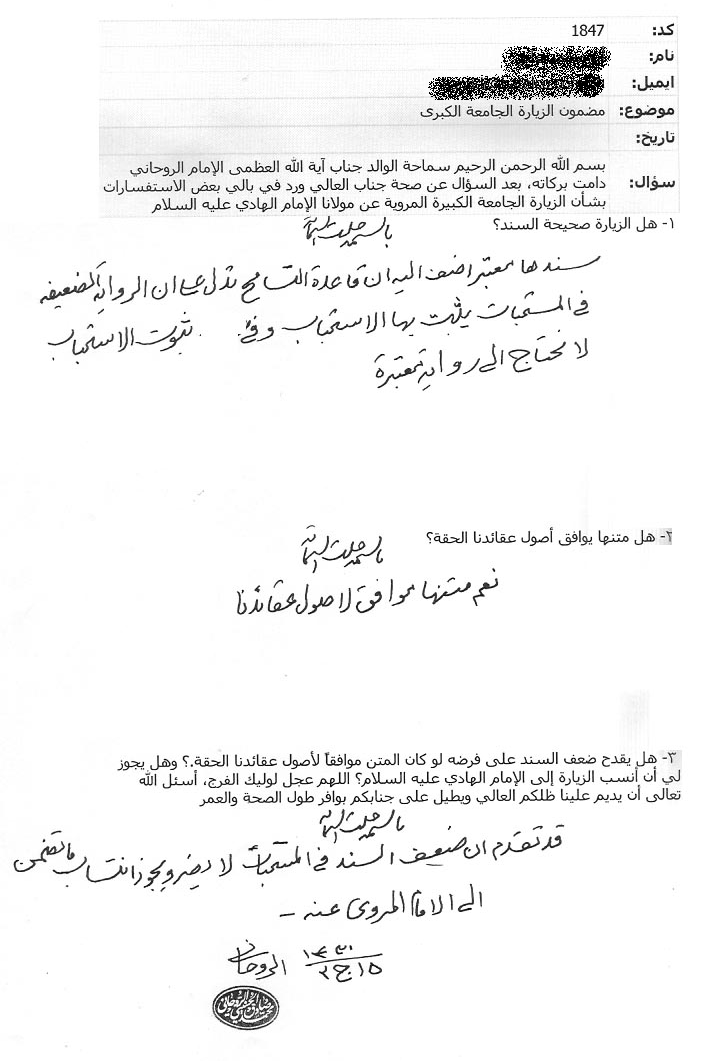 كد: 1847
نام:
ايميل:
موضوع: مضمون الزيارة الجامعة الكبرى
تاريخ:
سؤال: بسم الله الرحمن الرحيم سماحة الوالد جناب آية الله العظمى الإمام الروحاني
دامت بركاته، بعد السؤال عن صحة جناب العالي ورد في بالي بعض الاستفسارات
بشأن الزيارة الجامعة الكبيرة المروية عن مولانا الإمام الهادي عليه السلام
١- هل الزيارة صحيحة السند؟
باسمه جلت اسمائه
سندها معتبر اضف اليه ان قاعدة التسامح تدل على ان الرواية الضعيفة
في المستحبات يثبت بها الاستحباب وفي ثبوت الاستحباب
لا نحتاج الى رواية معتبرة
٢- هل متنها يوافق أصول عقائدنا الحقة؟
باسمه جلت اسمائه
نعم متنها موافق لاصول عقائدنا
٣- هل يقدح ضعف السند على فرضه لو كان المتن موافقاً لأصول عقائدنا الحقة.؟ وهل يجوز
لي أن أنسب الزيارة إلى الإمام الهادي عليه السلام؟ اللهم عجل لوليك الفرج، أسئل الله
تعالى أن يديم علينا ظلكم العالي ويطيل على جنابكم بوافر طول الصحة والعمر
باسمه جلت اسمائه
قد تقدم ان ضعف السند في المستحبات لا يضر ويجوز انتساب ما تضمن
الى الامام المروى عنه -
١٥ ج ٢ ١٤٣١ الروحاني